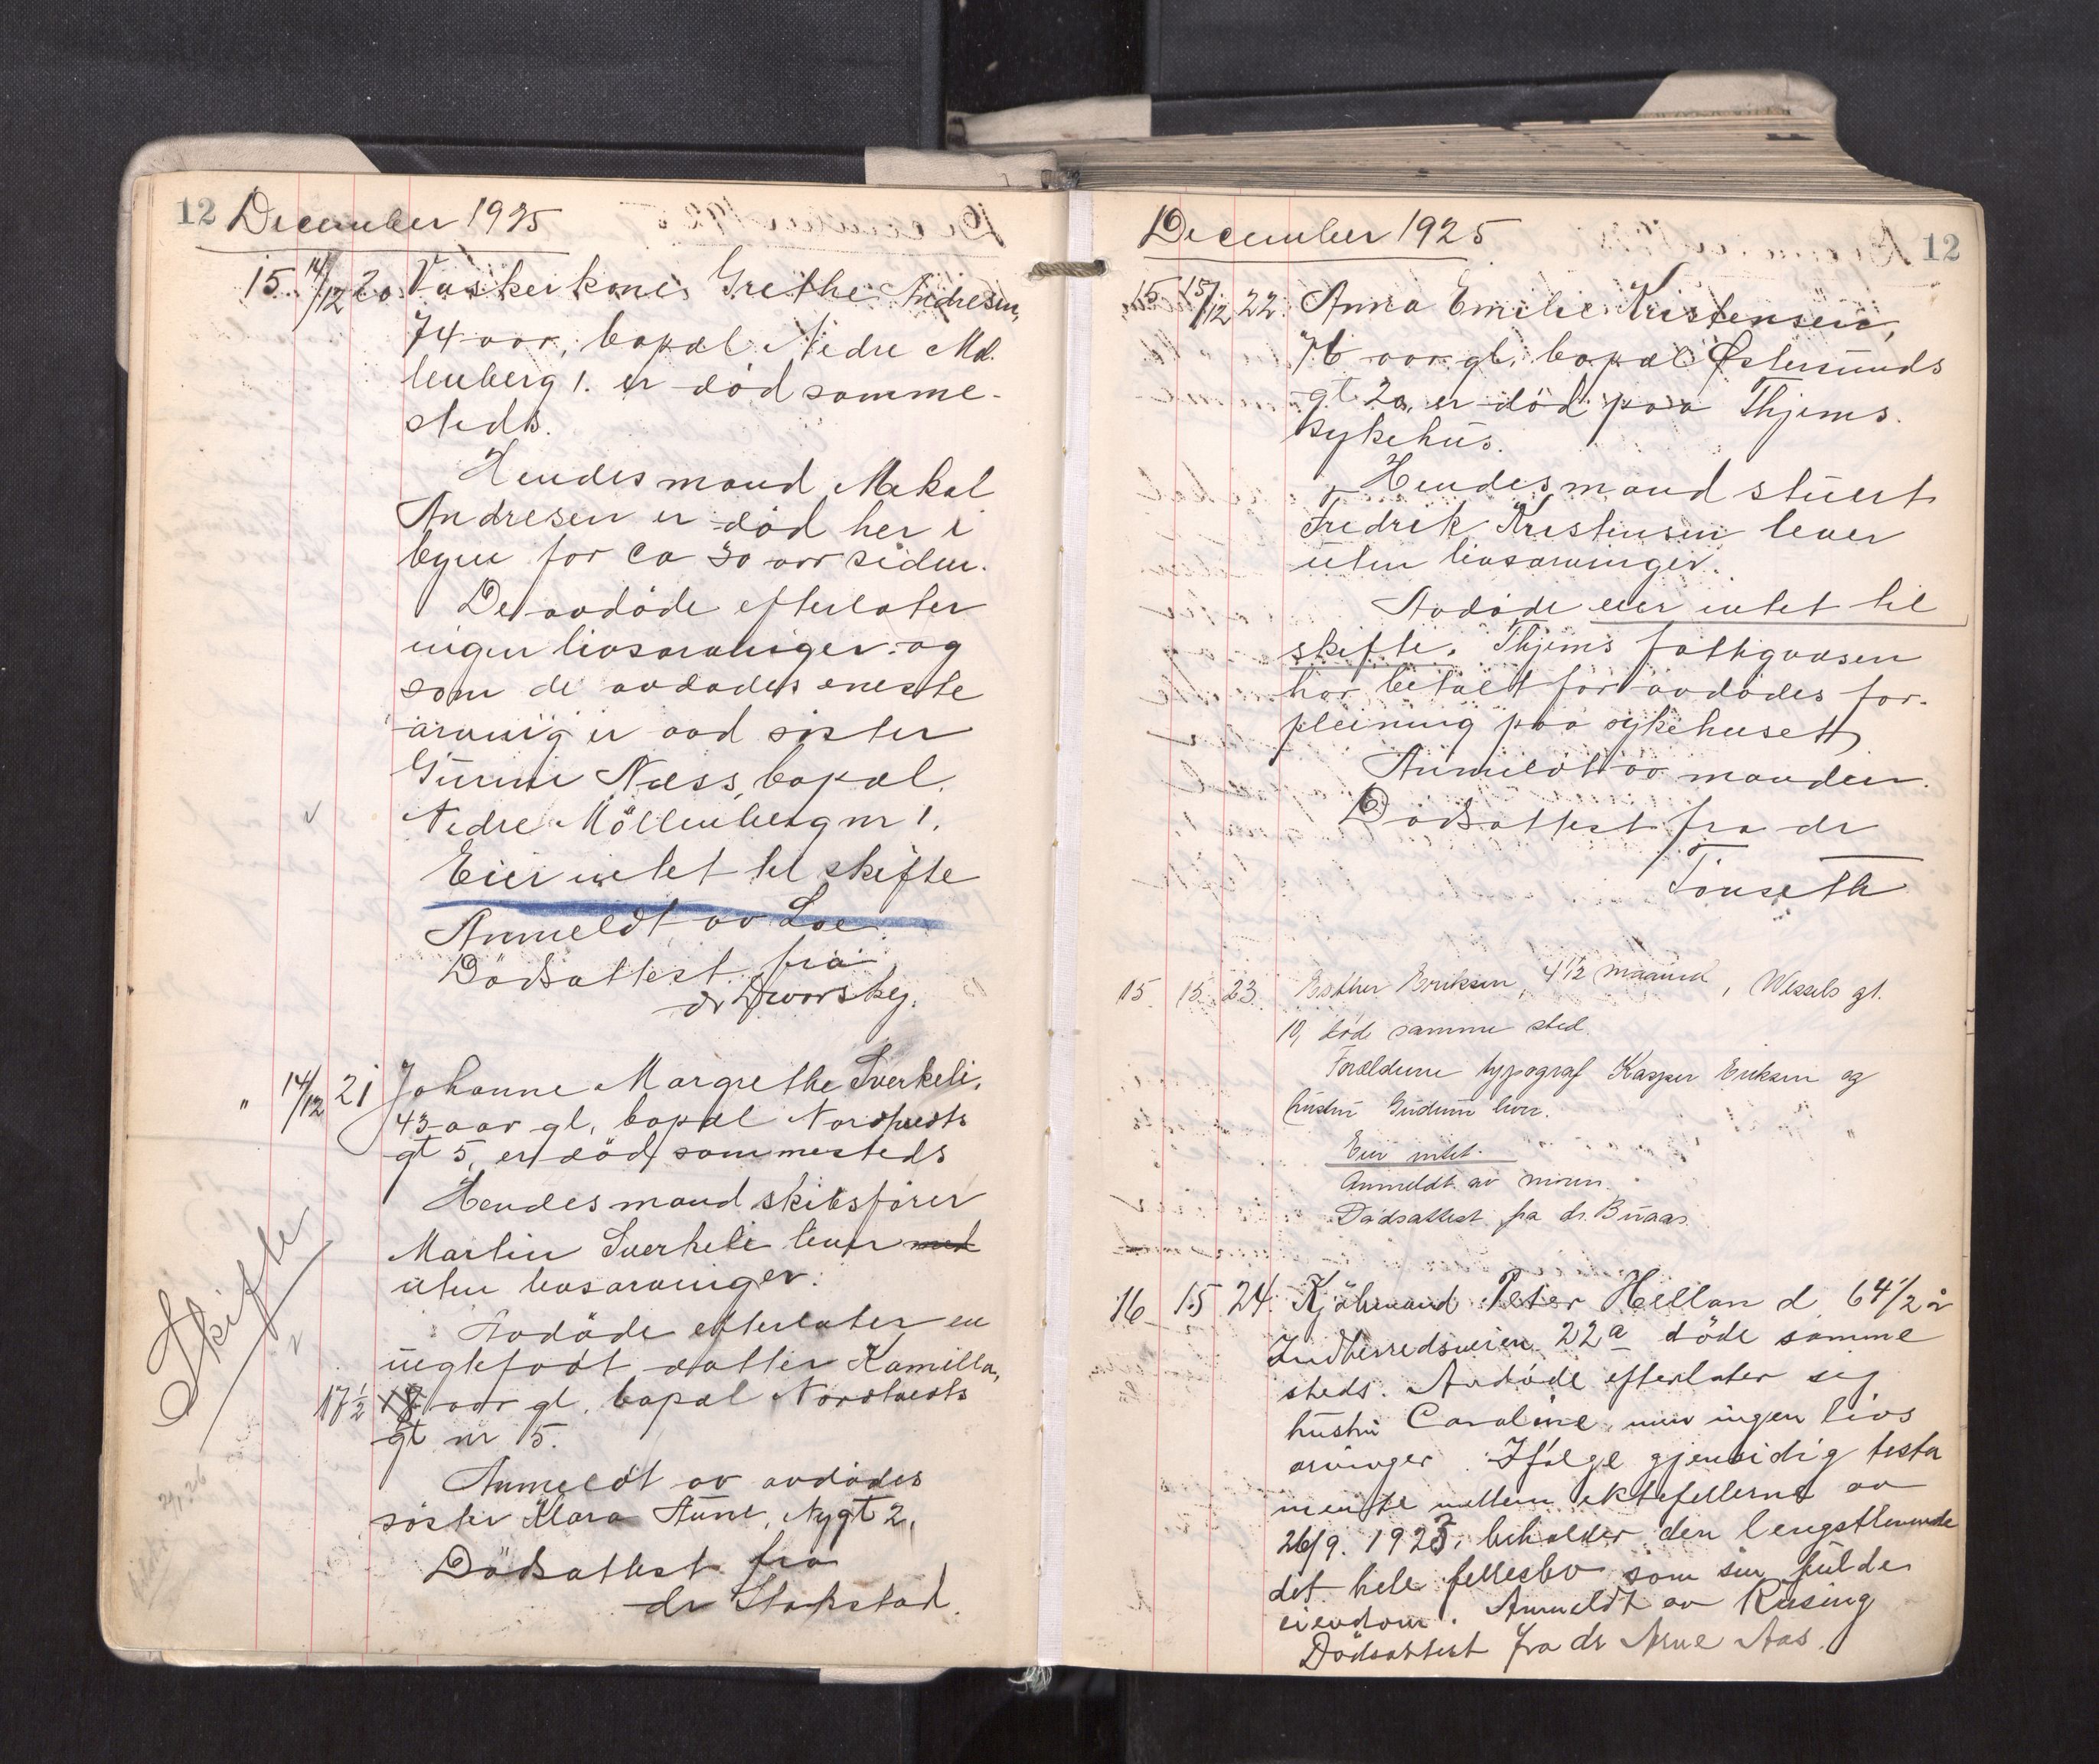 12 December 1925
15. 14/12 20 Vaskerkone Grethe Andresen,
74 aar, bopæl Nedre Møl
lenberg 1. er död samme-
steds.
Hendes mand Mekal
Andresen er död her i
byen for ca 30 aar siden.
De avdöde efterlater
ingen livsarvinger og
som de avdødes eneste
arving er avd søster
Gurine Næss, bopæl.
Nedre Möllenberg nr 1.
Eier intet til skifte
Anmeldt av Loe
Dödsattest fra
dr Dworsky.
" 14/12 21 Johanne Margrethe Sverkeli,
43 aar gl, bopæl Nordtvedts
gt 5, er död sammesteds
Hendes mand skibsfører
Martin Sverkeli lever med
uten livsarvinger.
Avdöde efterlater en
uegtefödt datter Kamilla,
17½ 18 aar gl. bopæl Nordtvedts
gt nr 5.
Anmeldt av avdødes
söster Klara Aune, Nygt 2.
Dödsattest fra
dr Stokstad.
Skifte
December 1925 12
15 15/12 22. Anna Emilie Kristensen,
76 aar gl. bopæl Østersunds
gt 2a, er död paa Thjems
sykehus.
Hendes mand stuert
Fredrik Kristensen lever
uten livsarvinger.
Avdöde eier intet til
skifte. Thjems fattigvæsen
har betalt for avdödes for-
pleining paa sykehuset
Anmeldt av manden.
Dödsattest fra dr
Tønseth
15. 15. 23. Esther Eriksen, 4 1/2 maaned, Wessels gt.
10, död samme sted.
Forældrene typograf Kasper Eriksen og
hustru Gudrun lever.
Eier intet.
Anmeldt av moren.
Dødsattest fra dr. Buaas.
16 15 24. Kjölmand Peter Helland 64 1/2 år
Indherredsveien 22a döde samme
steds. Avdöde efterlater sig
hustru Caroline, men ingen livs
arvinger. Ifølge gjensidig testa
mente mellem ektefellerne av
26/9. 1925, beholder den lengstlevende
det hele fellesbo som sin fulde
eiendom. Anmeldt av Rusing
Dödsattest fra dr Arne Aas.